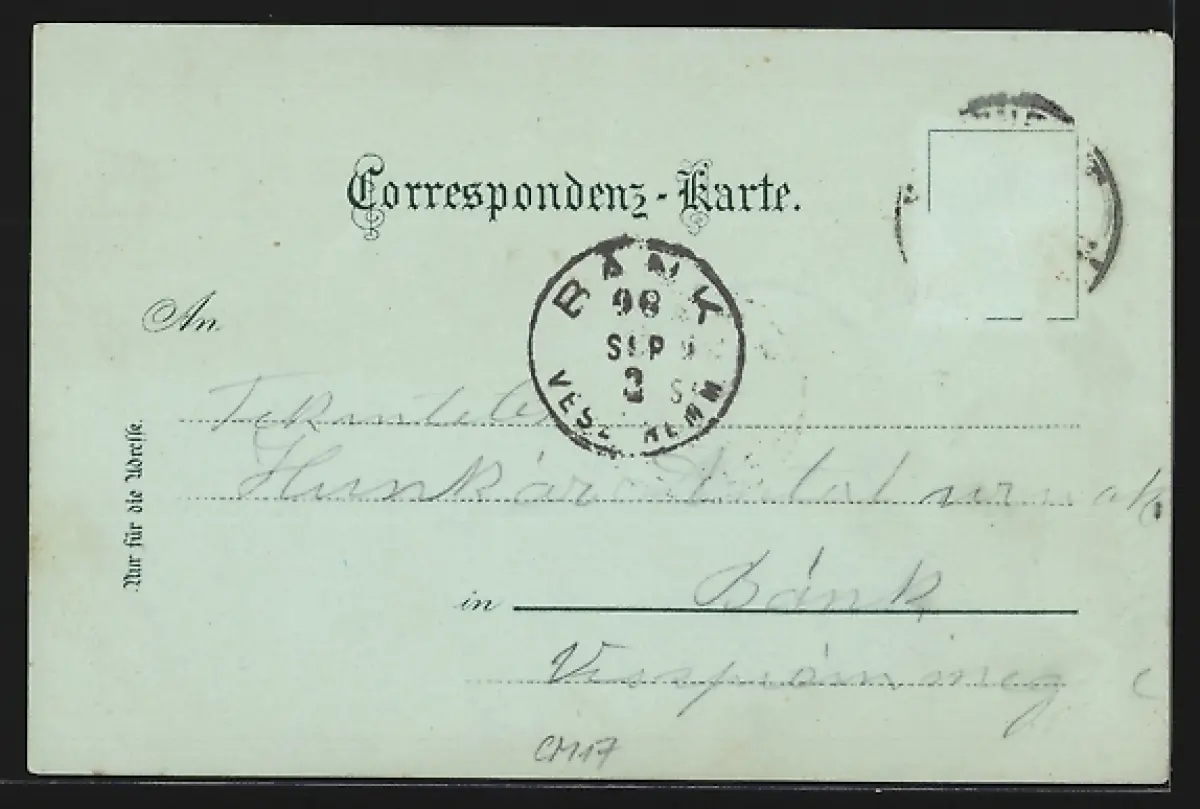 Correspondenz-Karte.
BANK
98
SEP
3
An
Tekintetes
Hunkár urnak
Nur für die Adresse.
in Bánk
Veszprém meg
CM17